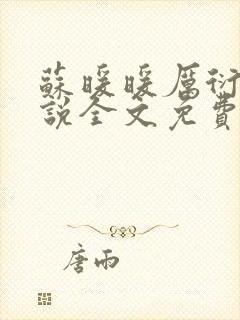 蘇暖暖厲衍
說全文免費
唐雨